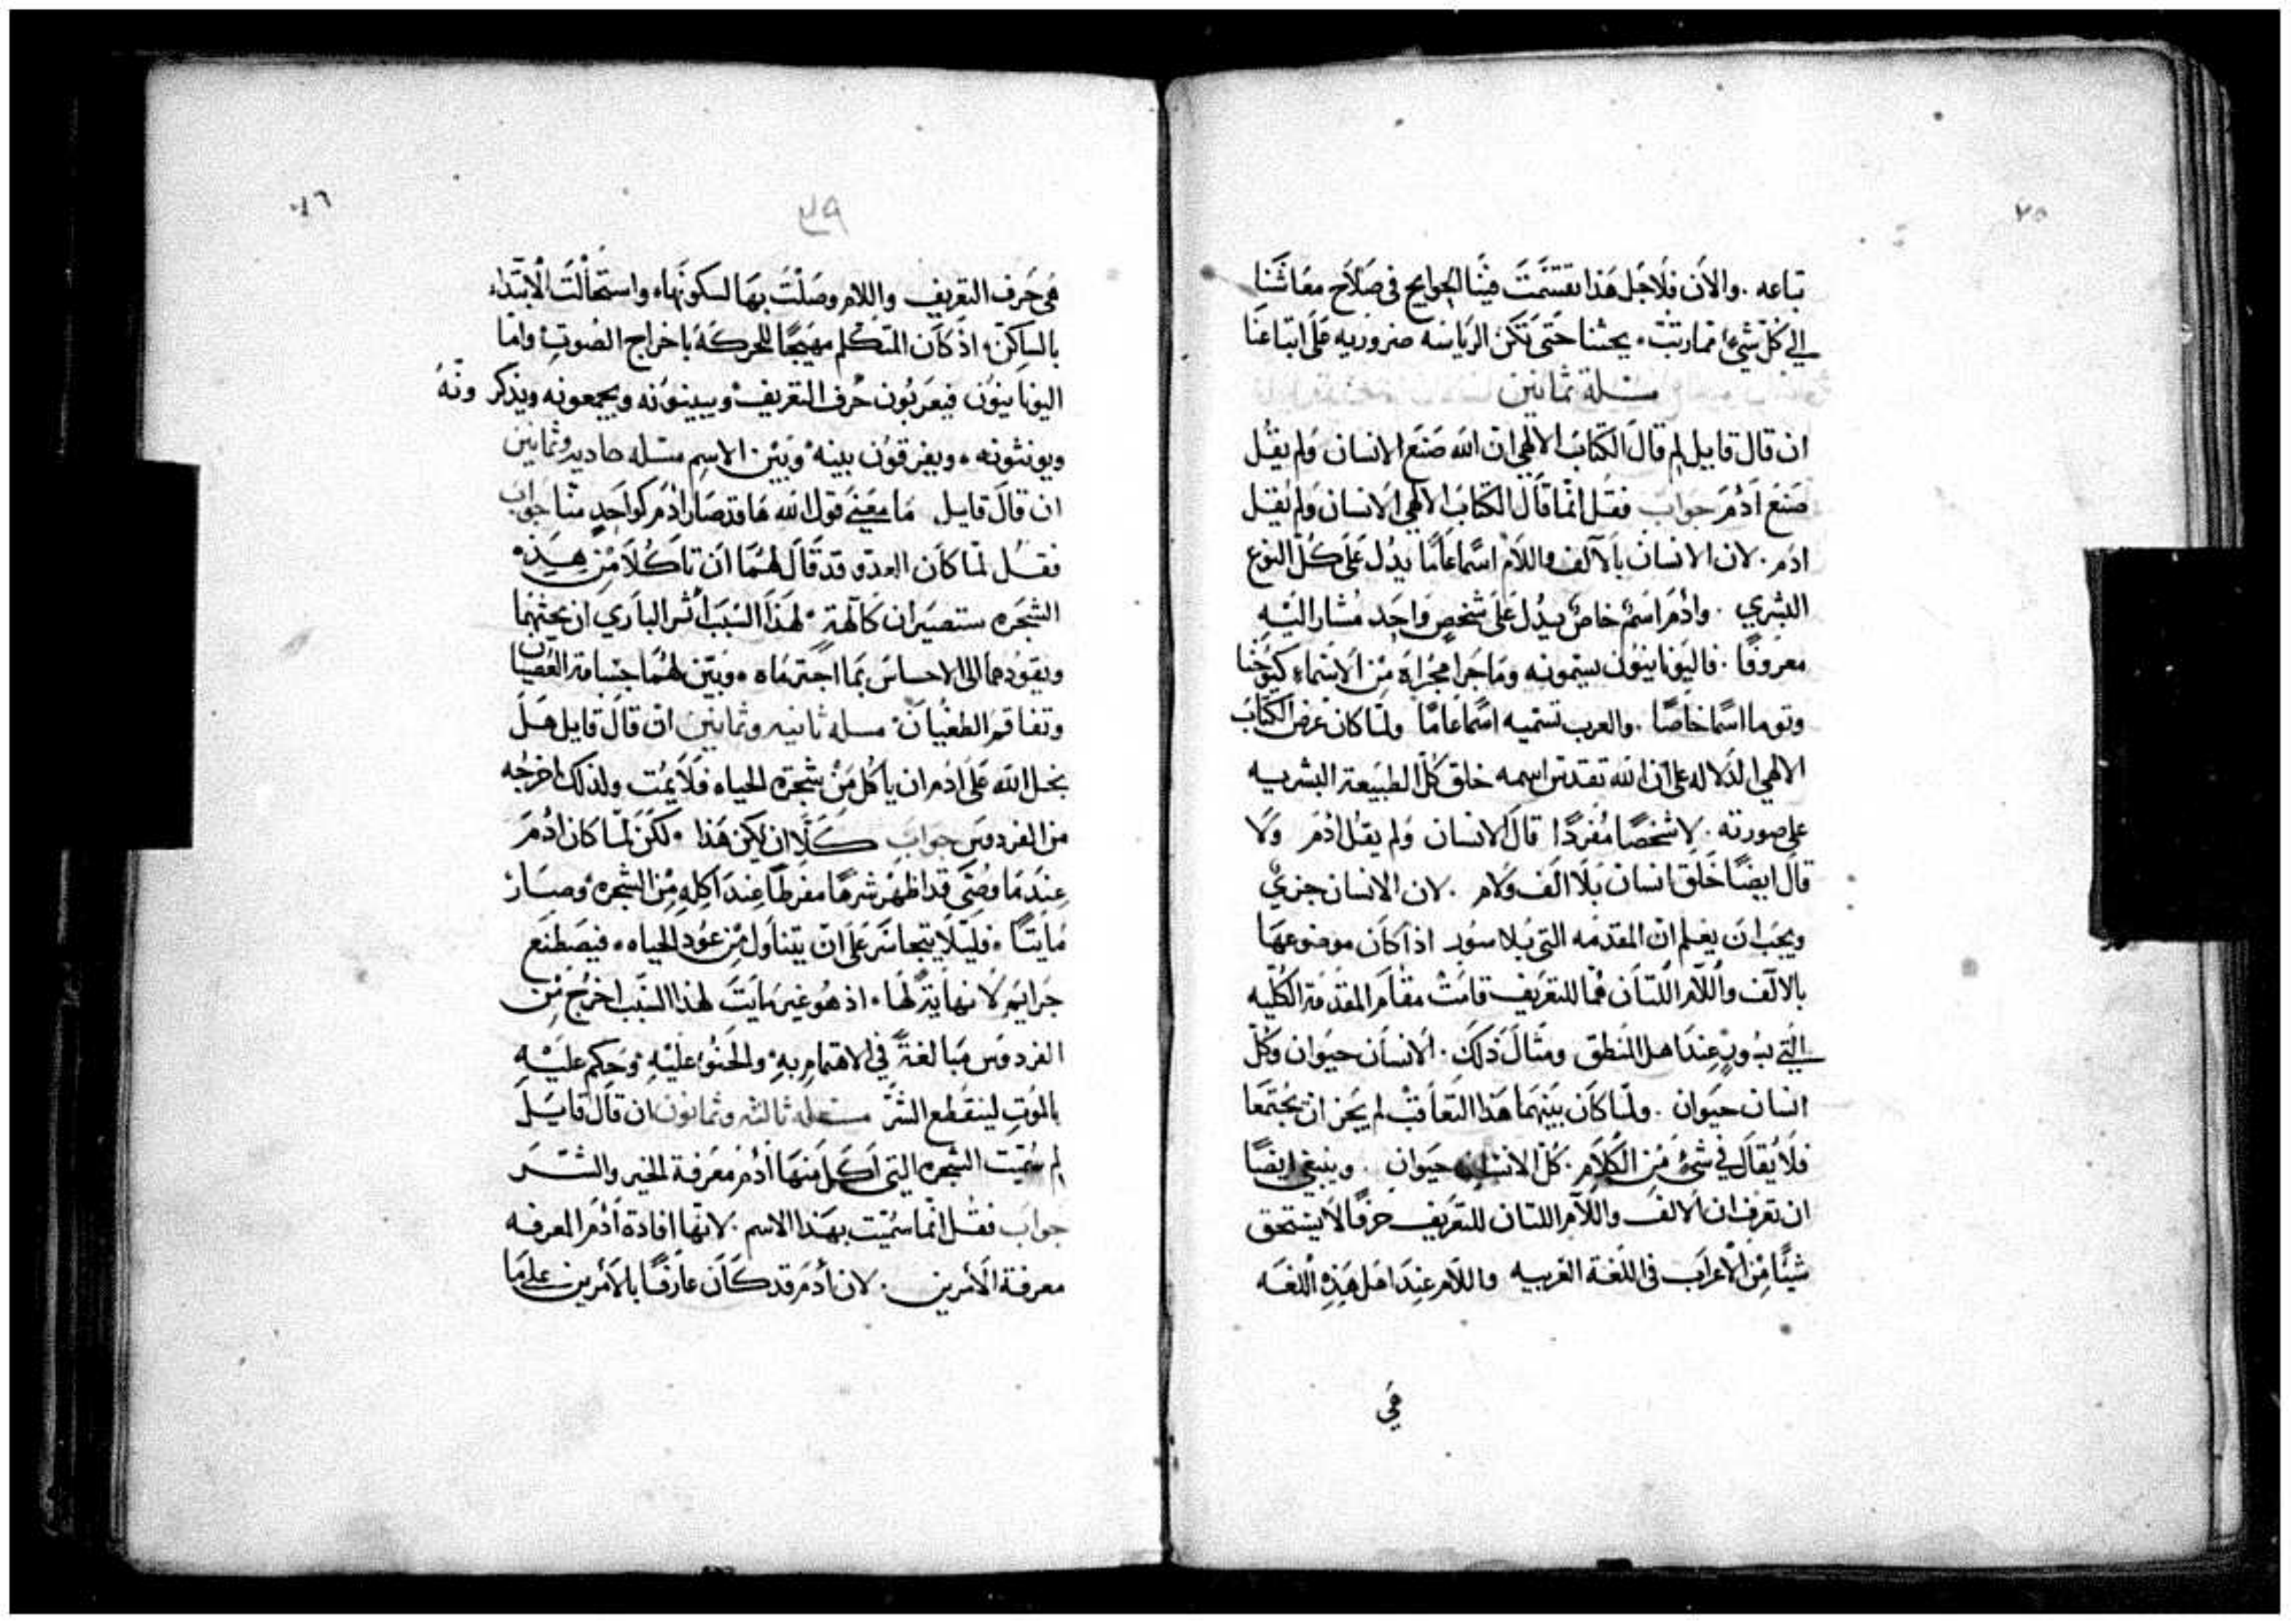 ٧٥
تباعه . والان فلاجل هذا تقتسمت فينا الجوايح في صلاح معاشنا
الى كل شي مما رتبت يحثنا حتى تكن الرياسه ضروريه على اتباعنا
مسلة ثمانين
ان قال قايل لم قال الكتاب الالهي ان الله صنع الانسان ولم يقل
صنع ادم جواب فقل انما قال الكتاب الالهي الانسان ولم يقل
ادم . لان الانسان بالالف واللام اسمًا عامًا يدل على كل النوع
البشري . وادم اسم خاص يدل على شخص واحد مشار اليه
معروفًا . فاليونانيون يسمونه وما جرا مجراه من الاسماء كيوحنا
وتوما اسمًا خاصًا . والعرب تسميه اسمًا عامًا ولما كان غرض الكتاب
الالهي الدلاله على ان الله تقدس اسمه خلق كل الطبيعة البشريه
على صورته . لا شخصًا مفردًا قال الانسان ولم يقل ادم ولا
قال ايضًا خلق انسان بلا الف ولام . لان الانسان جزي
ويجب ان يعلم ان المقدمه التي بلا سور اذا كان موضوعها
بالالف واللام اللتان هما للتعريف قامت مقام المقدمة الكليه
التي بسور عند اهل المنطق ومثال ذلك . الانسان حيوان وكل
انسان حيوان . ولما كان بينهما هذا التعاقب لم يجز ان يجتمعا
فلا يقال في شي من الكلام . كل الانسان حيوان . وينبغي ايضًا
ان تعرف ان الالف واللام اللتان للتعريف حرفًا لا يستحق
شيًا من الاعراب في اللغة العربيه واللام عند اهل هذه اللغه
هي
٧٦
٣٩
هي حرف التعريف واللام وصلت بها لسكونها واستحالت الابتداء
بالساكن اذ كان المتكلم مهيجًا للحركة باخراج الصوت واما
اليونانيون فيعربون حرف التعريف ويبينونه ويجمعونه ويذكرونه
ويونثونه ويفرقون بينه وبين الاسم مسله حاديه وثمانين
ان قال قايل ما معنى قول الله ها قد صار ادم كواحد منا جواب
فقل لما كان العدو قد قال لهما ان تاكلا من هذه
الشجره ستصيران كالهة لهذا السبب اثر الباري ان يحثهما
ويقودهما الى الاحساس بما اجترماه وبين لهما جسامة العصيان
وتفاقم الطغيان مسله ثانيه وثمانين ان قال قايل هل
بخل الله على ادم ان ياكل من شجرة الحياه فلا يمت ولذلك اخرجه
من الفردوس جواب كلا ان يكن هذا لكن لما كان ادم
عندما وصى قد اظهر شرهًا مفرطًا عند اكله من الشجره وصار
مايتًا فليلا يتجاسر على ان يتناول من عود الحياه فيصطنع
جرايم لا نهاية لها اذ هو غير مايت لهذا السبب اخرج من
الفردوس مبالغة في الاهتمام به والحنو عليه وحكم عليه
بالموت لينقطع الشر مسله ثالثه وثمانون ان قال قايل
لم سميت الشجره التي اكل منها ادم معرفة الخير والشر
جواب فقل انما سميت بهذا الاسم . لانها افادة ادم المعرفه
معرفة الامرين . لان ادم قد كان عارفًا بالامرين على ما